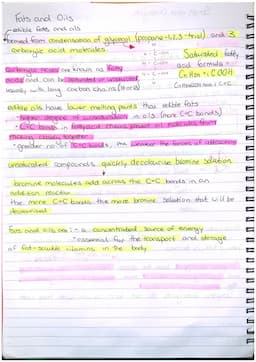 Fats and Oils
edible fats and oils
formed from condensation of glycerol (propane-1,2,3-triol) and 3
carboxylic acid molecules
Saturated fatty
acid formula =
Carboxylic acids are known as fatty
acids and can be saturated or unsaturated,
usually with long carbon chains
edible oils have lower melting points than edible fats
higher degree of unsaturation in oils (more C=C bonds)
C=C bonds in fatty acid chains prevent oil molecules from
packing closely together
greater no. of C=C bonds, the weaker the forces of attraction
unsaturated compounds quickly decolourise bromine solution
bromine molecules add across the C=C bonds in an
addition reaction
the more C=C bonds the more bromine solution that will be
decolourised
Fats and oils are: - a concentrated source of energy
- essential for the transport and storage
of fat-soluble vitamins in the body